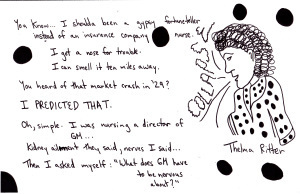 You know... I shoulda been a gypsy fortuneteller
instead of an insurance company nurse.
I got a nose for trouble.
I can smell it ten miles away.
You heard of that market crash in '29?
I PREDICTED THAT.
Oh, simple. I was nursing a director of
GM...
Kidney ailment they said, nerves I said...
Then I asked myself: "What does GM have
to be nervous
about?"
COLLAPSE
Thelma Ritter